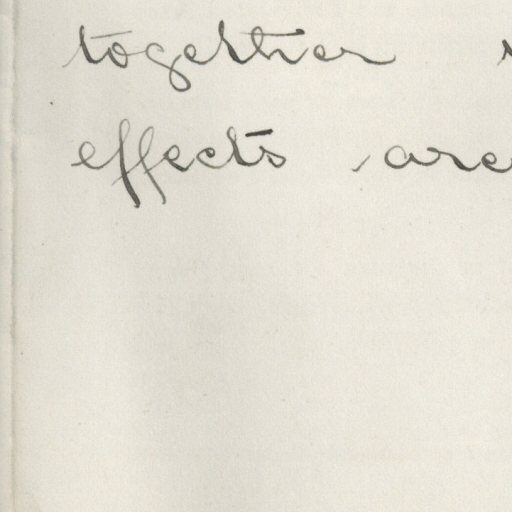 together
effects are